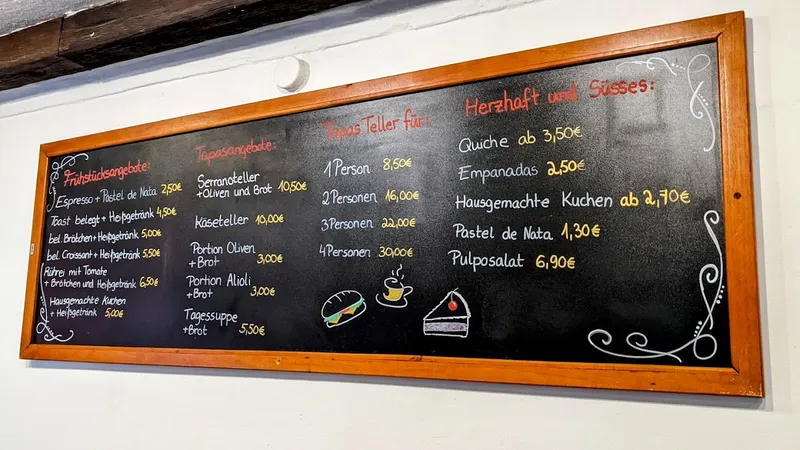 Frühstücksangebote:
Espresso + Pastel de Nata 2,50€
Toast belegt + Heißgetränk 4,50€
bel. Brötchen + Heißgetränk 5,00€
bel. Croissant + Heißgetränk 5,50€
Rührei mit Tomate
+ Brötchen und Heißgetränk 6,50€
Hausgemachte Kuchen
+ Heißgetränk 5,00€
Tapasangebote:
Serranoteller
+Oliven und Brot 10,50€
Käseteller 10,00€
Portion Oliven
+Brot 3,00€
Portion Alioli
+Brot 3,00€
Tagessuppe
+Brot 5,50€
Tapas Teller für:
1 Person 8,50€
2 Personen 16,00€
3 Personen 22,00€
4 Personen 30,00€
Herzhaft und Süsses:
Quiche ab 3,50€
Empanadas 2,50€
Hausgemachte Kuchen ab 2,70€
Pastel de Nata 1,30€
Pulposalat 6,90€